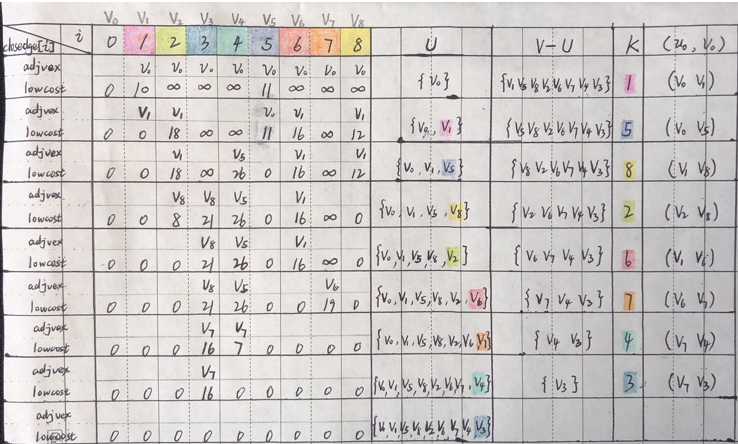 V₀ V₁ V₂ V₃ V₄ V₅ V₆ V₇ V₈
closedge[i] i 0 1 2 3 4 5 6 7 8 U V-U K (u₀, v₀)
adjvex V₀ V₀ V₀ V₀ V₀ V₀ V₀ V₀
lowcost 0 10 ∞ ∞ ∞ 11 ∞ ∞ ∞ {V₀} {V₁ V₅ V₈ V₂ V₆ V₇ V₄ V₃} 1 (V₀ V₁)
adjvex V₁ V₁ V₀ V₁ V₁
lowcost 0 0 18 ∞ ∞ 11 16 ∞ 12 {V₀, V₁} {V₅ V₈ V₂ V₆ V₇ V₄ V₃} 5 (V₀ V₅)
adjvex V₁ V₅ V₁ V₁
lowcost 0 0 18 ∞ 26 0 16 ∞ 12 {V₀, V₁, V₅} {V₈ V₂ V₆ V₇ V₄ V₃} 8 (V₁ V₈)
adjvex V₈ V₈ V₅ V₁
lowcost 0 0 8 21 26 0 16 ∞ 0 {V₀, V₁, V₅, V₈} {V₂ V₆ V₇ V₄ V₃} 2 (V₂ V₈)
adjvex V₈ V₅ V₁
lowcost 0 0 0 21 26 0 16 ∞ 0 {V₀, V₁, V₅, V₈, V₂} {V₆ V₇ V₄ V₃} 6 (V₁ V₆)
adjvex V₈ V₅ V₆
lowcost 0 0 0 21 26 0 0 19 0 {V₀, V₁, V₅, V₈, V₂, V₆} {V₇ V₄ V₃} 7 (V₆ V₇)
adjvex V₇ V₇
lowcost 0 0 0 16 7 0 0 0 0 {V₀, V₁, V₅, V₈, V₂, V₆, V₇} {V₄ V₃} 4 (V₇ V₄)
adjvex V₇
lowcost 0 0 0 16 0 0 0 0 0 {V₀, V₁, V₅, V₈, V₂, V₆, V₇, V₄} {V₃} 3 (V₇ V₃)
adjvex
lowcost 0 0 0 0 0 0 0 0 0 {V₀, V₁, V₅, V₈, V₂, V₆, V₇, V₄, V₃}